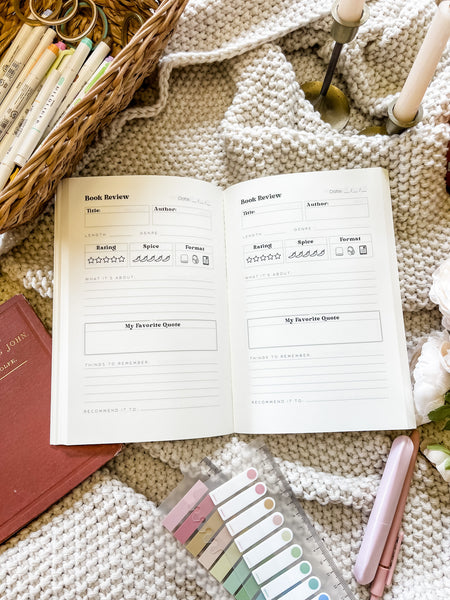 Book Review
Date:
Title:
Author:
LENGTH
GENRE
Rating
Spice
Format
WHAT IT'S ABOUT:
My Favorite Quote
THINGS TO REMEMBER:
RECOMMEND IT TO:
Book Review
Date:
Title:
Author:
LENGTH
GENRE
Rating
Spice
Format
WHAT IT'S ABOUT:
My Favorite Quote
THINGS TO REMEMBER:
RECOMMEND IT TO:
JOHN